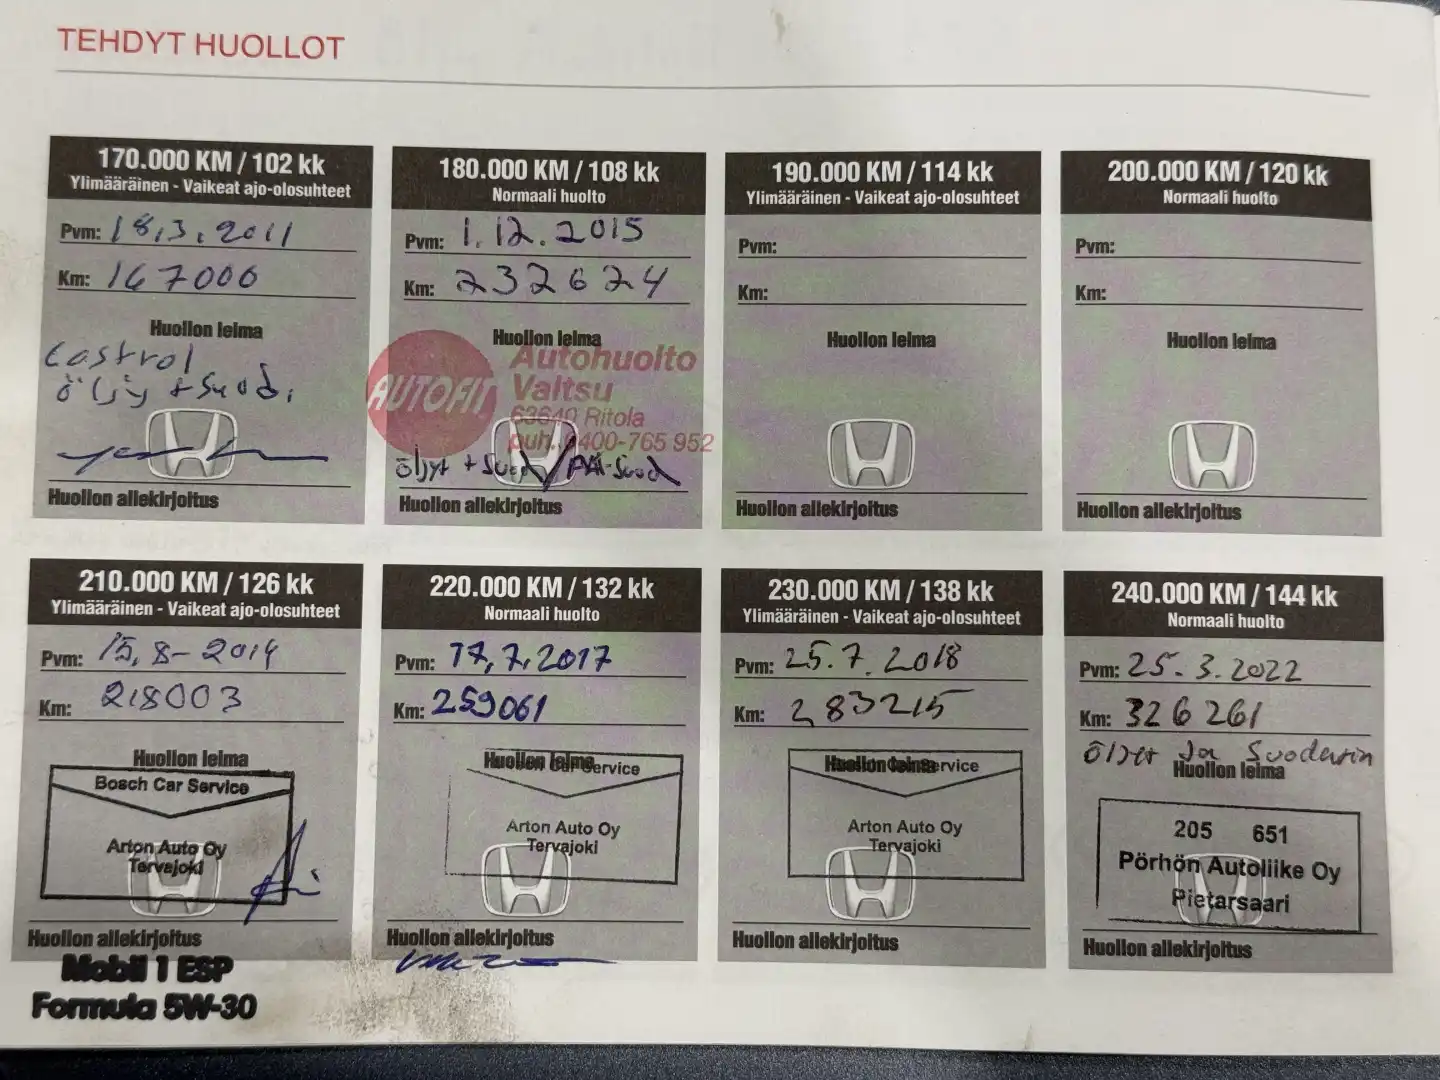 TEHDYT HUOLLOT
170.000 KM / 102 kk
Ylimääräinen - Vaikeat ajo-olosuhteet
Pvm: 18.3.2011
Km: 167000
Huollon leima
Castrol
öljy + suod.
Huollon allekirjoitus
180.000 KM / 108 kk
Normaali huolto
Pvm: 1.12.2015
Km: 232624
Huollon leima
AUTOFIT
Autohuolto
Valtsu
63640 Ritola
puh. 0400-765 952
öljyt + Suod
Huollon allekirjoitus
190.000 KM / 114 kk
Ylimääräinen - Vaikeat ajo-olosuhteet
Pvm:
Km:
Huollon leima
Huollon allekirjoitus
200.000 KM / 120 kk
Normaali huolto
Pvm:
Km:
Huollon leima
Huollon allekirjoitus
210.000 KM / 126 kk
Ylimääräinen - Vaikeat ajo-olosuhteet
Pvm: 15.8-2014
Km: 218003
Huollon leima
Bosch Car Service
Arton Auto Oy
Tervajoki
Huollon allekirjoitus
Mobil 1 ESP
Formula 5W-30
220.000 KM / 132 kk
Normaali huolto
Pvm: 17.7.2017
Km: 259061
Huollon leima
Car Service
Arton Auto Oy
Tervajoki
Huollon allekirjoitus
230.000 KM / 138 kk
Ylimääräinen - Vaikeat ajo-olosuhteet
Pvm: 25.7.2018
Km: 283215
Huollon leima
Service
Arton Auto Oy
Tervajoki
Huollon allekirjoitus
240.000 KM / 144 kk
Normaali huolto
Pvm: 25.3.2022
Km: 326261
Öljyt Ja Suodatin
Huollon leima
205 651
Pörhön Autoliike Oy
Pietarsaari
Huollon allekirjoitus